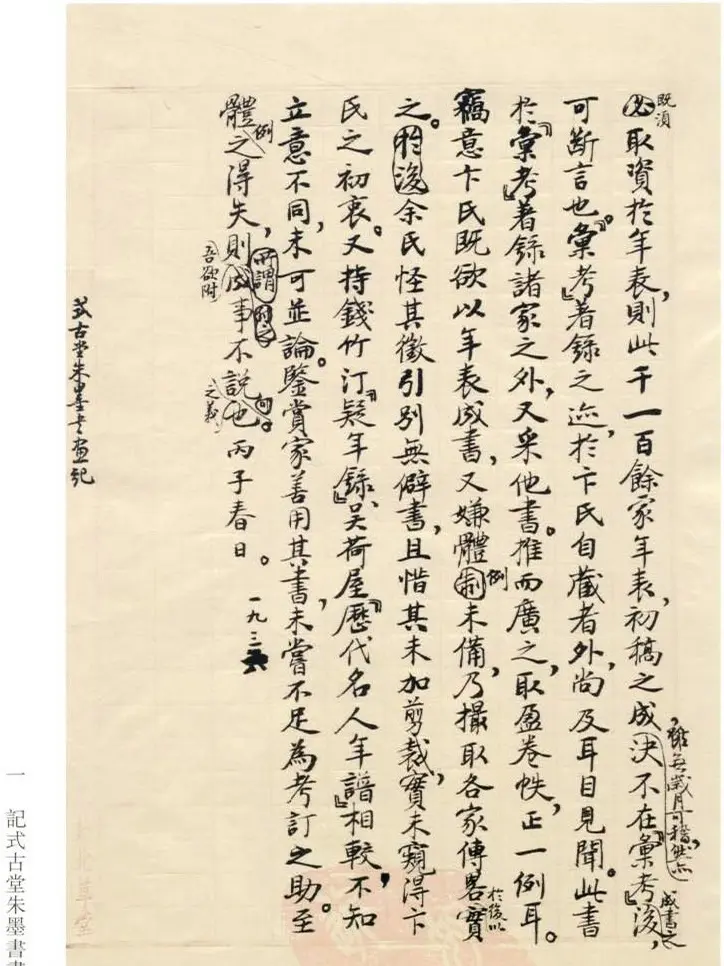 既須
必取資於年表，則此千一百餘家年表，初稿之成，決不在《彙考》後，
雖無歲月可稽，然亦
成書之
可斷言也。《彙考》著錄之迹，於卞氏自藏者外，尚及耳目見聞。此書
於《彙考》著錄諸家之外，又采他書。推而廣之，取盈卷帙，正一例耳。
竊意卞氏既欲以年表成書，又嫌體制未備，乃撮取各家傳畧實
例
於後以
之。後余氏怪其徵引別無僻書，且惜其未加剪裁，實未窺得卞
氏之初衷。又持錢竹汀《疑年錄》、吳荷屋《歷代名人年譜》相較，不知
立意不同，未可並論。鑒賞家善用其書，未嘗不足為考訂之助。至
體之得失，則成事不說也。丙子春日。
例
所謂
吾欲附
之義
一九三六
式古堂朱墨書畫紀
一 記式古堂朱墨書